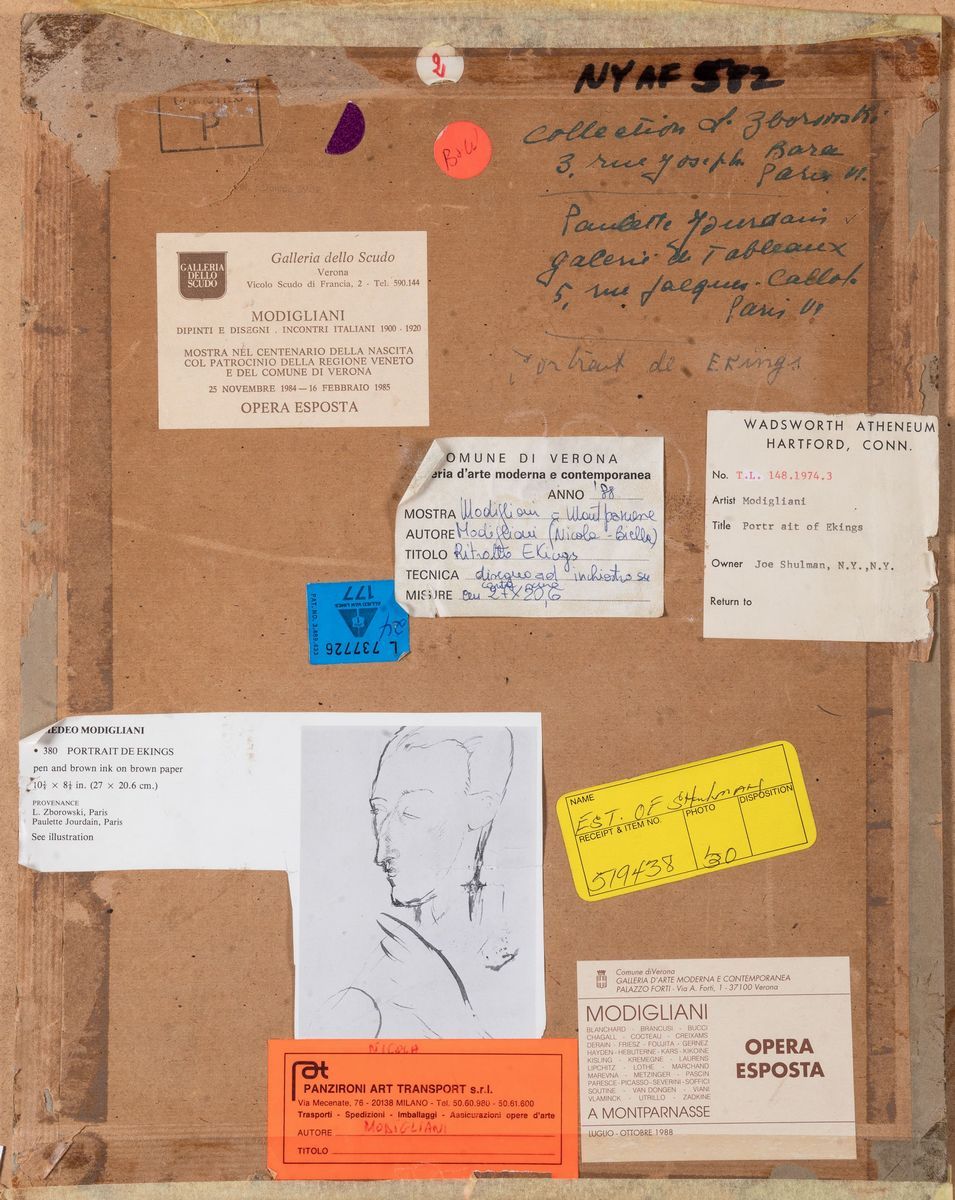 2
NYAF 582
P
BoW
Collection L. Zborowski
3, rue Joseph Bara
Paris VI.
Paulette Jourdain
galerie de Tableaux
5, rue Jacques-Callot
Paris VI
Portrait de EKings
GALLERIA
DELLO
SCUDO
Galleria dello Scudo
Verona
Vicolo Scudo di Francia, 2 - Tel. 590.144
MODIGLIANI
DIPINTI E DISEGNI . INCONTRI ITALIANI 1900 - 1920
MOSTRA NEL CENTENARIO DELLA NASCITA
COL PATROCINIO DELLA REGIONE VENETO
E DEL COMUNE DI VERONA
25 NOVEMBRE 1984 — 16 FEBBRAIO 1985
OPERA ESPOSTA
OMUNE DI VERONA
eria d'arte moderna e contemporanea
ANNO '88
MOSTRA Modigliani a Montparnasse
AUTORE Modigliani (Nicola - Biella)
TITOLO Ritratto EKings
TECNICA disegno ad inchiostro su
carta
MISURE cm 27x20,6
WADSWORTH ATHENEUM
HARTFORD, CONN.
No. T.L. 148.1974.3
Artist Modigliani
Title Portr ait of Ekings
Owner Joe Shulman, N.Y.,N.Y.
Return to
L 737726
177
ALLIED VAN LINES
PAT. NO. 3,489,433
EDEO MODIGLIANI
• 380 PORTRAIT DE EKINGS
pen and brown ink on brown paper
10¾ × 8⅛ in. (27 × 20.6 cm.)
PROVENANCE
L. Zborowski, Paris
Paulette Jourdain, Paris
See illustration
NAME
EST. OF SHULMAN
RECEIPT & ITEM NO. PHOTO DISPOSITION
519438 20
NICOLA
PANZIRONI ART TRANSPORT s.r.l.
Via Mecenate, 76 - 20138 MILANO - Tel. 50.60.980 - 50.61.600
Trasporti - Spedizioni - Imballaggi - Assicurazioni opere d'arte
AUTORE MODIGLIANI
TITOLO
Comune di Verona
GALLERIA D'ARTE MODERNA E CONTEMPORANEA
PALAZZO FORTI - Via A. Forti, 1 - 37100 Verona
MODIGLIANI
BLANCHARD - BRANCUSI - BUCCI
CHAGALL - COCTEAU - CREIXAMS
DERAIN - FRIESZ - FOUJITA - GERNEZ
HAYDEN - HEBUTERNE - KARS - KIKOINE
KISLING - KREMEGNE - LAURENS
LIPCHITZ - LOTHE - MARCHAND
MAREVNA - METZINGER - PASCIN
PARESCE - PICASSO - SEVERINI - SOFFICI
SOUTINE - VAN DONGEN - VIANI
VLAMINCK - UTRILLO - ZADKINE
A MONTPARNASSE
LUGLIO - OTTOBRE 1988
OPERA
ESPOSTA